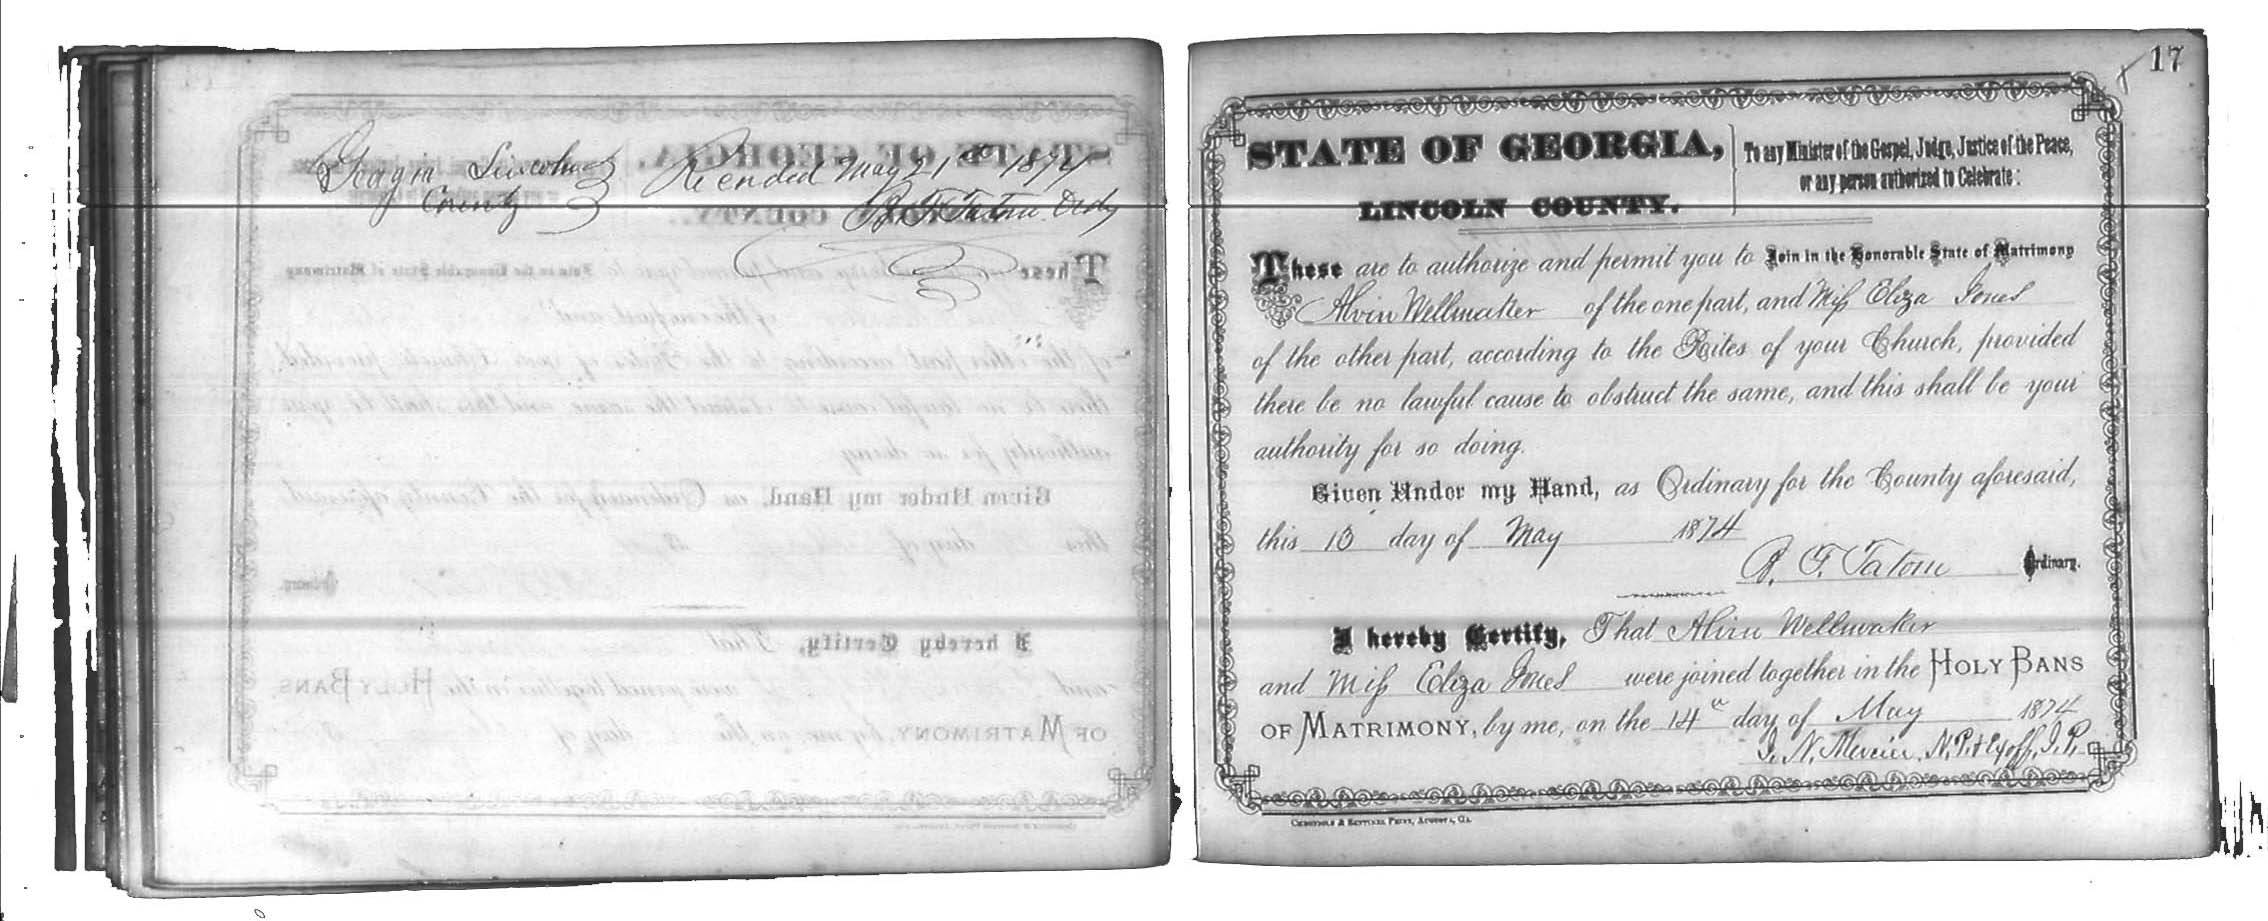 Georgia Lincoln
County
Recorded May 21st 1874
B. F. Tatom Ordy
17
STATE OF GEORGIA,
LINCOLN COUNTY.
To any Minister of the Gospel, Judge, Justice of the Peace,
or any person authorized to Celebrate:
These are to authorize and permit you to Join in the Honorable State of Matrimony
Alvin Wellmaker of the one part, and Miss Eliza Jones
of the other part, according to the Rites of your Church, provided
there be no lawful cause to obstruct the same, and this shall be your
authority for so doing.
Given Under my Hand, as Ordinary for the County aforesaid,
this 13 day of May 1874
B. F. Tatom Ordinary.
I hereby Certify, That Alvin Wellmaker
and Miss Eliza Jones were joined together in the HOLY BANS
OF MATRIMONY, by me, on the 14th day of May 1874
J. N. Mercier, N. P. & Exoff. J. P.
CHRONICLE & SENTINEL PRINT, AUGUSTA, GA.